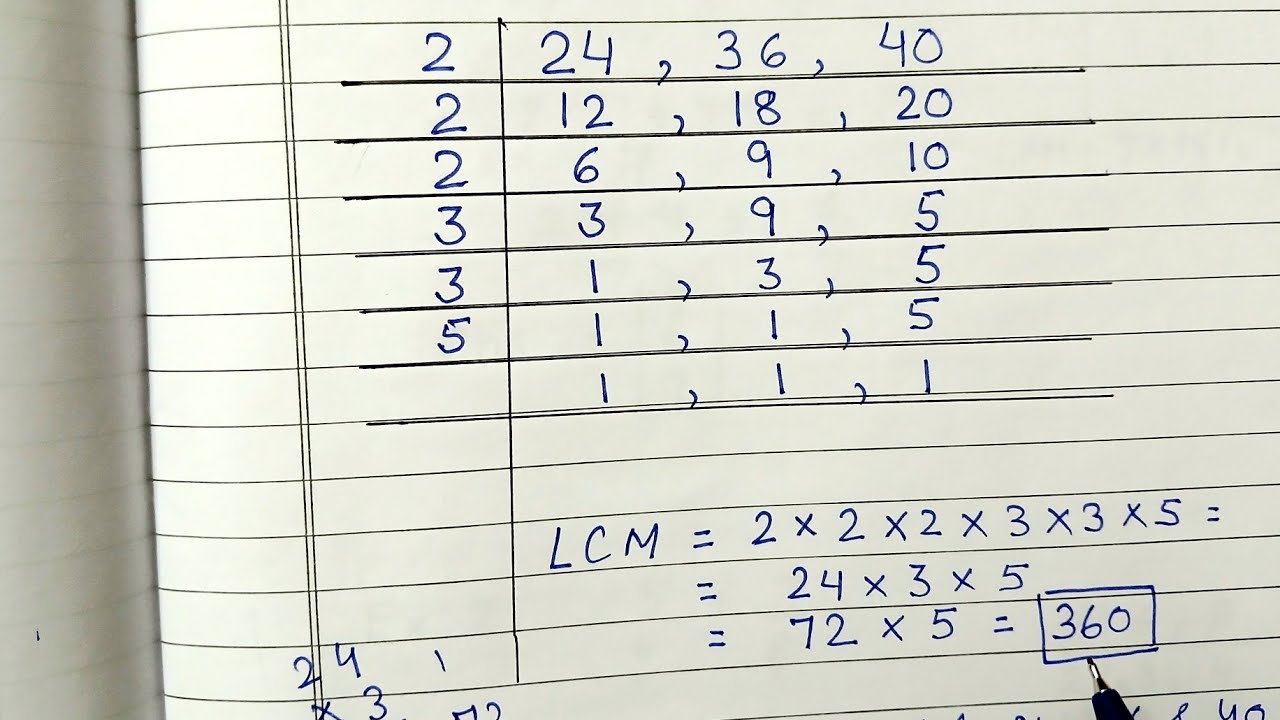 2 | 24 , 36 , 40
2 | 12 , 18 , 20
2 | 6 , 9 , 10
3 | 3 , 9 , 5
3 | 1 , 3 , 5
5 | 1 , 1 , 5
1 , 1 , 1
LCM = 2 × 2 × 2 × 3 × 3 × 5 =
= 24 × 3 × 5
= 72 × 5 = 360
24
× 3
72
40